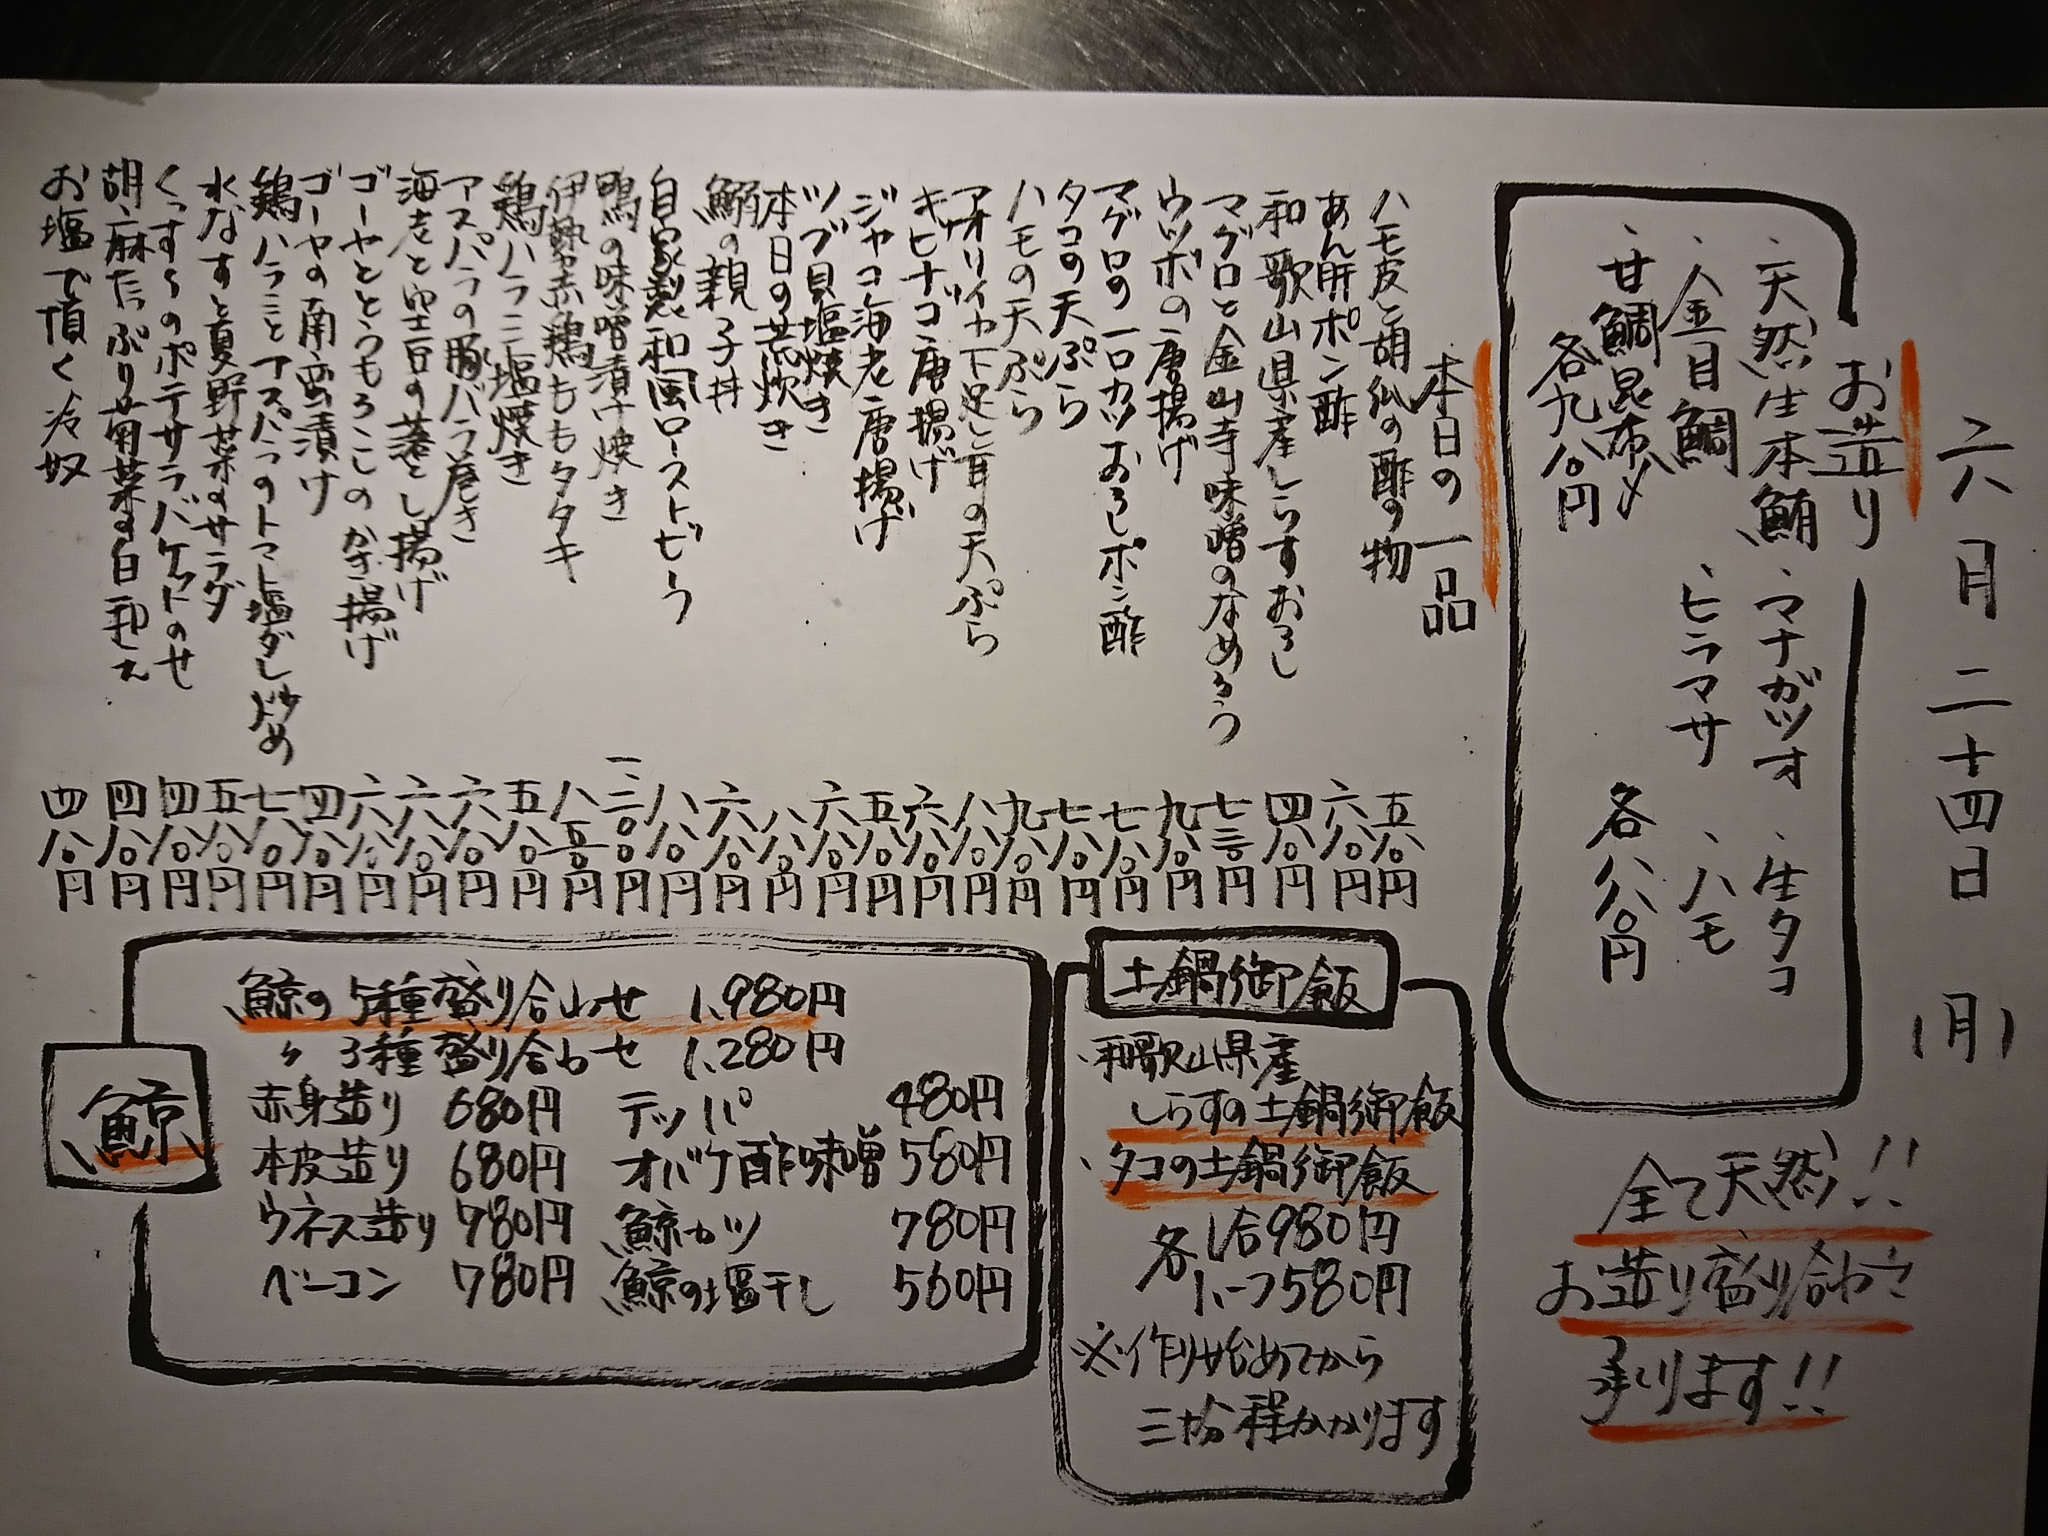 六月二十四日(月)
お造り
・天然生本鮪 ・マナガツオ ・生タコ
・金目鯛 ・ヒラマサ ・ハモ
・甘鯛昆布〆 各八八〇円
各九八〇円
全て天然!!
お造り盛り合わせ
承ります!!
本日の一品
ハモ皮と胡瓜の酢の物 五八〇円
あん肝ポン酢 六八〇円
和歌山県産しらすおろし 四八〇円
マグロと金山寺味噌のなめろう 七三〇円
ウツボの唐揚げ 九八〇円
マグロの一口カツおろしポン酢 七八〇円
タコの天ぷら 七八〇円
ハモの天ぷら 九八〇円
アオリイカ下足と耳の天ぷら 八八〇円
キビナゴ唐揚げ 六八〇円
ジャコ海老唐揚げ 五八〇円
ツブ貝塩焼き 六八〇円
本日の荒炊き 八八〇円
鰯の親子丼 六八〇円
自家製和風ローストビーフ 八八〇円
鴨の味噌漬け焼き 一二〇〇円
伊勢赤鶏ももタタキ 八五〇円
鶏ハラミ塩焼き 五八〇円
アスパラの豚バラ巻き 六八〇円
海老と空豆の落とし揚げ 六八〇円
ゴーヤととうもろこしのかき揚げ 六八〇円
ゴーヤの南蛮漬け 四八〇円
鶏ハラミとアスパラのトマト塩ダレ炒め 七八〇円
水なすと夏野菜のサラダ 五八〇円
くっする のポテサラバケットのせ 四八〇円
胡麻たっぷり菊菜の白和え 四八〇円
お塩で頂く冷奴 四八〇円
土鍋御飯
・和歌山県産
しらすの土鍋御飯
・タコの土鍋御飯
各 1合980円
1.5つ580円
※作り始めてから
三十分程かかります
鯨
鯨の5種盛り合わせ 1,980円
〃 3種盛り合わせ 1,280円
赤身造り 680円 テッパ 480円
本皮造り 680円 オバケ酢味噌 580円
ウネス造り 780円 鯨カツ 780円
ベーコン 780円 鯨の塩干し 560円